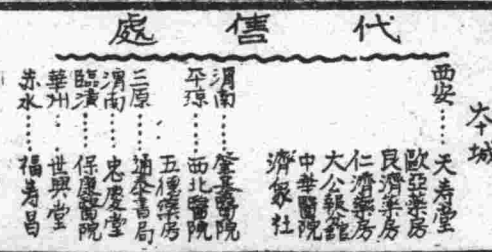 代售處
本城
西安……天寿堂
歐亞藥房
良濟藥房
仁濟藥房
大公報分舘
中華醫院
濟象社
渭南……肇基醫院
平凉……西北醫院
五德藥房
三原……通俗書局
渭南……忠慶堂
臨潼……保康醫院
華州……世興堂
赤水……福寿昌